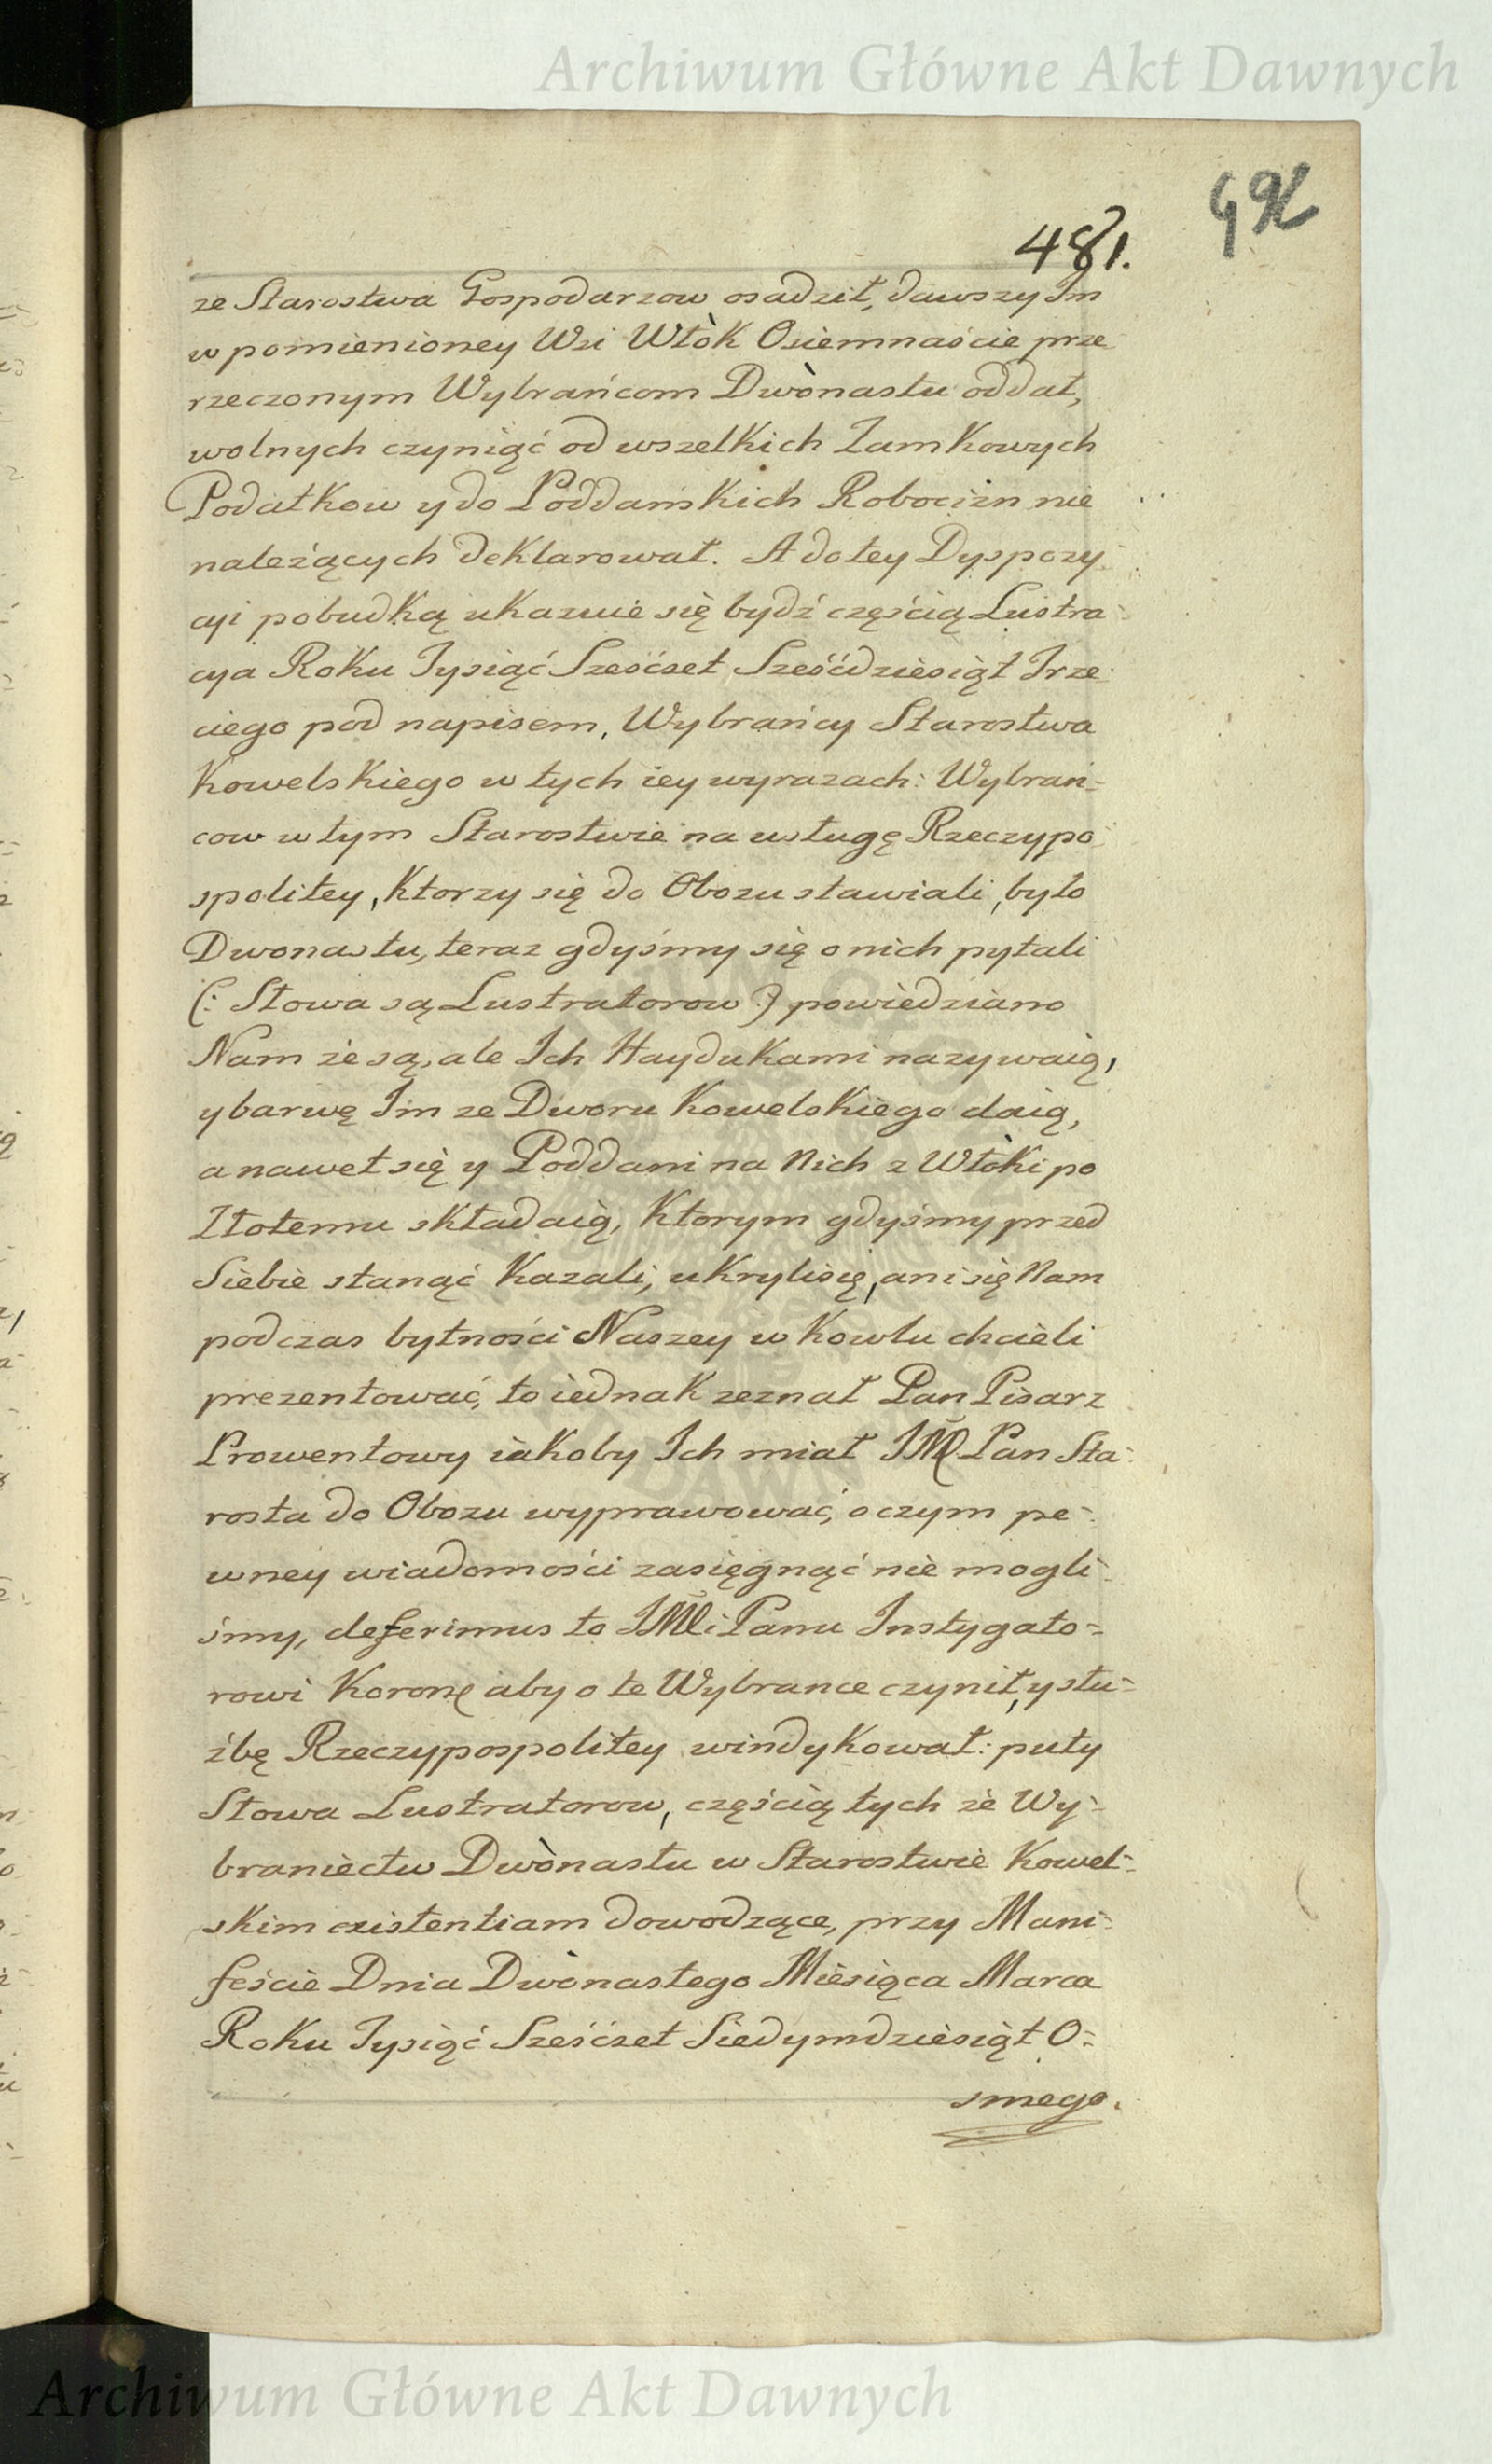 Archiwum Główne Akt Dawnych
481.
ze Starostwa Gospodarzow osadził, dawszy Im
w pomienioney Wsi Włòk Osiemnaście prze
rzeczonym Wybrańcom Dwònastu oddał,
wolnych czyniąć od wszelkich Zamkowych
Podatkow y do Poddańskich Robocizn nie
należących deklarował. A do tey Dyspozy
cyi pobudką ukazuie się bydź częścią Lustra-
cya Roku Tysiąć Sześćset Sześćdziesiąt Trze-
ciego pod napisem, Wybrańcy Starostwa
Kowelskiego w tych iey wyrazach: Wybrań-
cow w tym Starostwie na usługę Rzeczypo-
spolitey, ktorzy się do Obozu stawiali, było
Dwonastu, teraz gdyśmy się o nich pytali
(: Słowa są Lustratorow :) powiedziano
Nam że są, ale Ich Haydukami nazywaią,
y barwę Im ze Dworu Kowelskiego daią,
a nawet się y Poddani na Nich z Włòki po
Złotemu składaią, Ktorym gdyśmy przed
Siebie stanąć kazali, ukryli się, ani się Nam
podczas bytności Naszey w Kowlu chcieli
prezentować, to iednak zeznał Pan Pisarz
Prowentowy iakoby Ich miał JM Pan Sta-
rosta do Obozu wyprawować, o czym pe-
wney wiadomości zasięgnąć nie mogli-
śmy, deferimus to JMCi Panu Instygato-
rowi Koronę aby o te Wybrance czynił, y słu-
żbę Rzeczypospolitey windykował: puty
Słowa Lustratorow, częścią tych że Wy-
braniectw Dwònastu w Starostwie Kowel-
skim existentiam dowodzące, przy Mani-
feście Dnia Dwònastego Miesiąca Marca
Roku Tysiąć Sześćset Siedymdziesiąt O-
smego.
Archiwum Główne Akt Dawnych